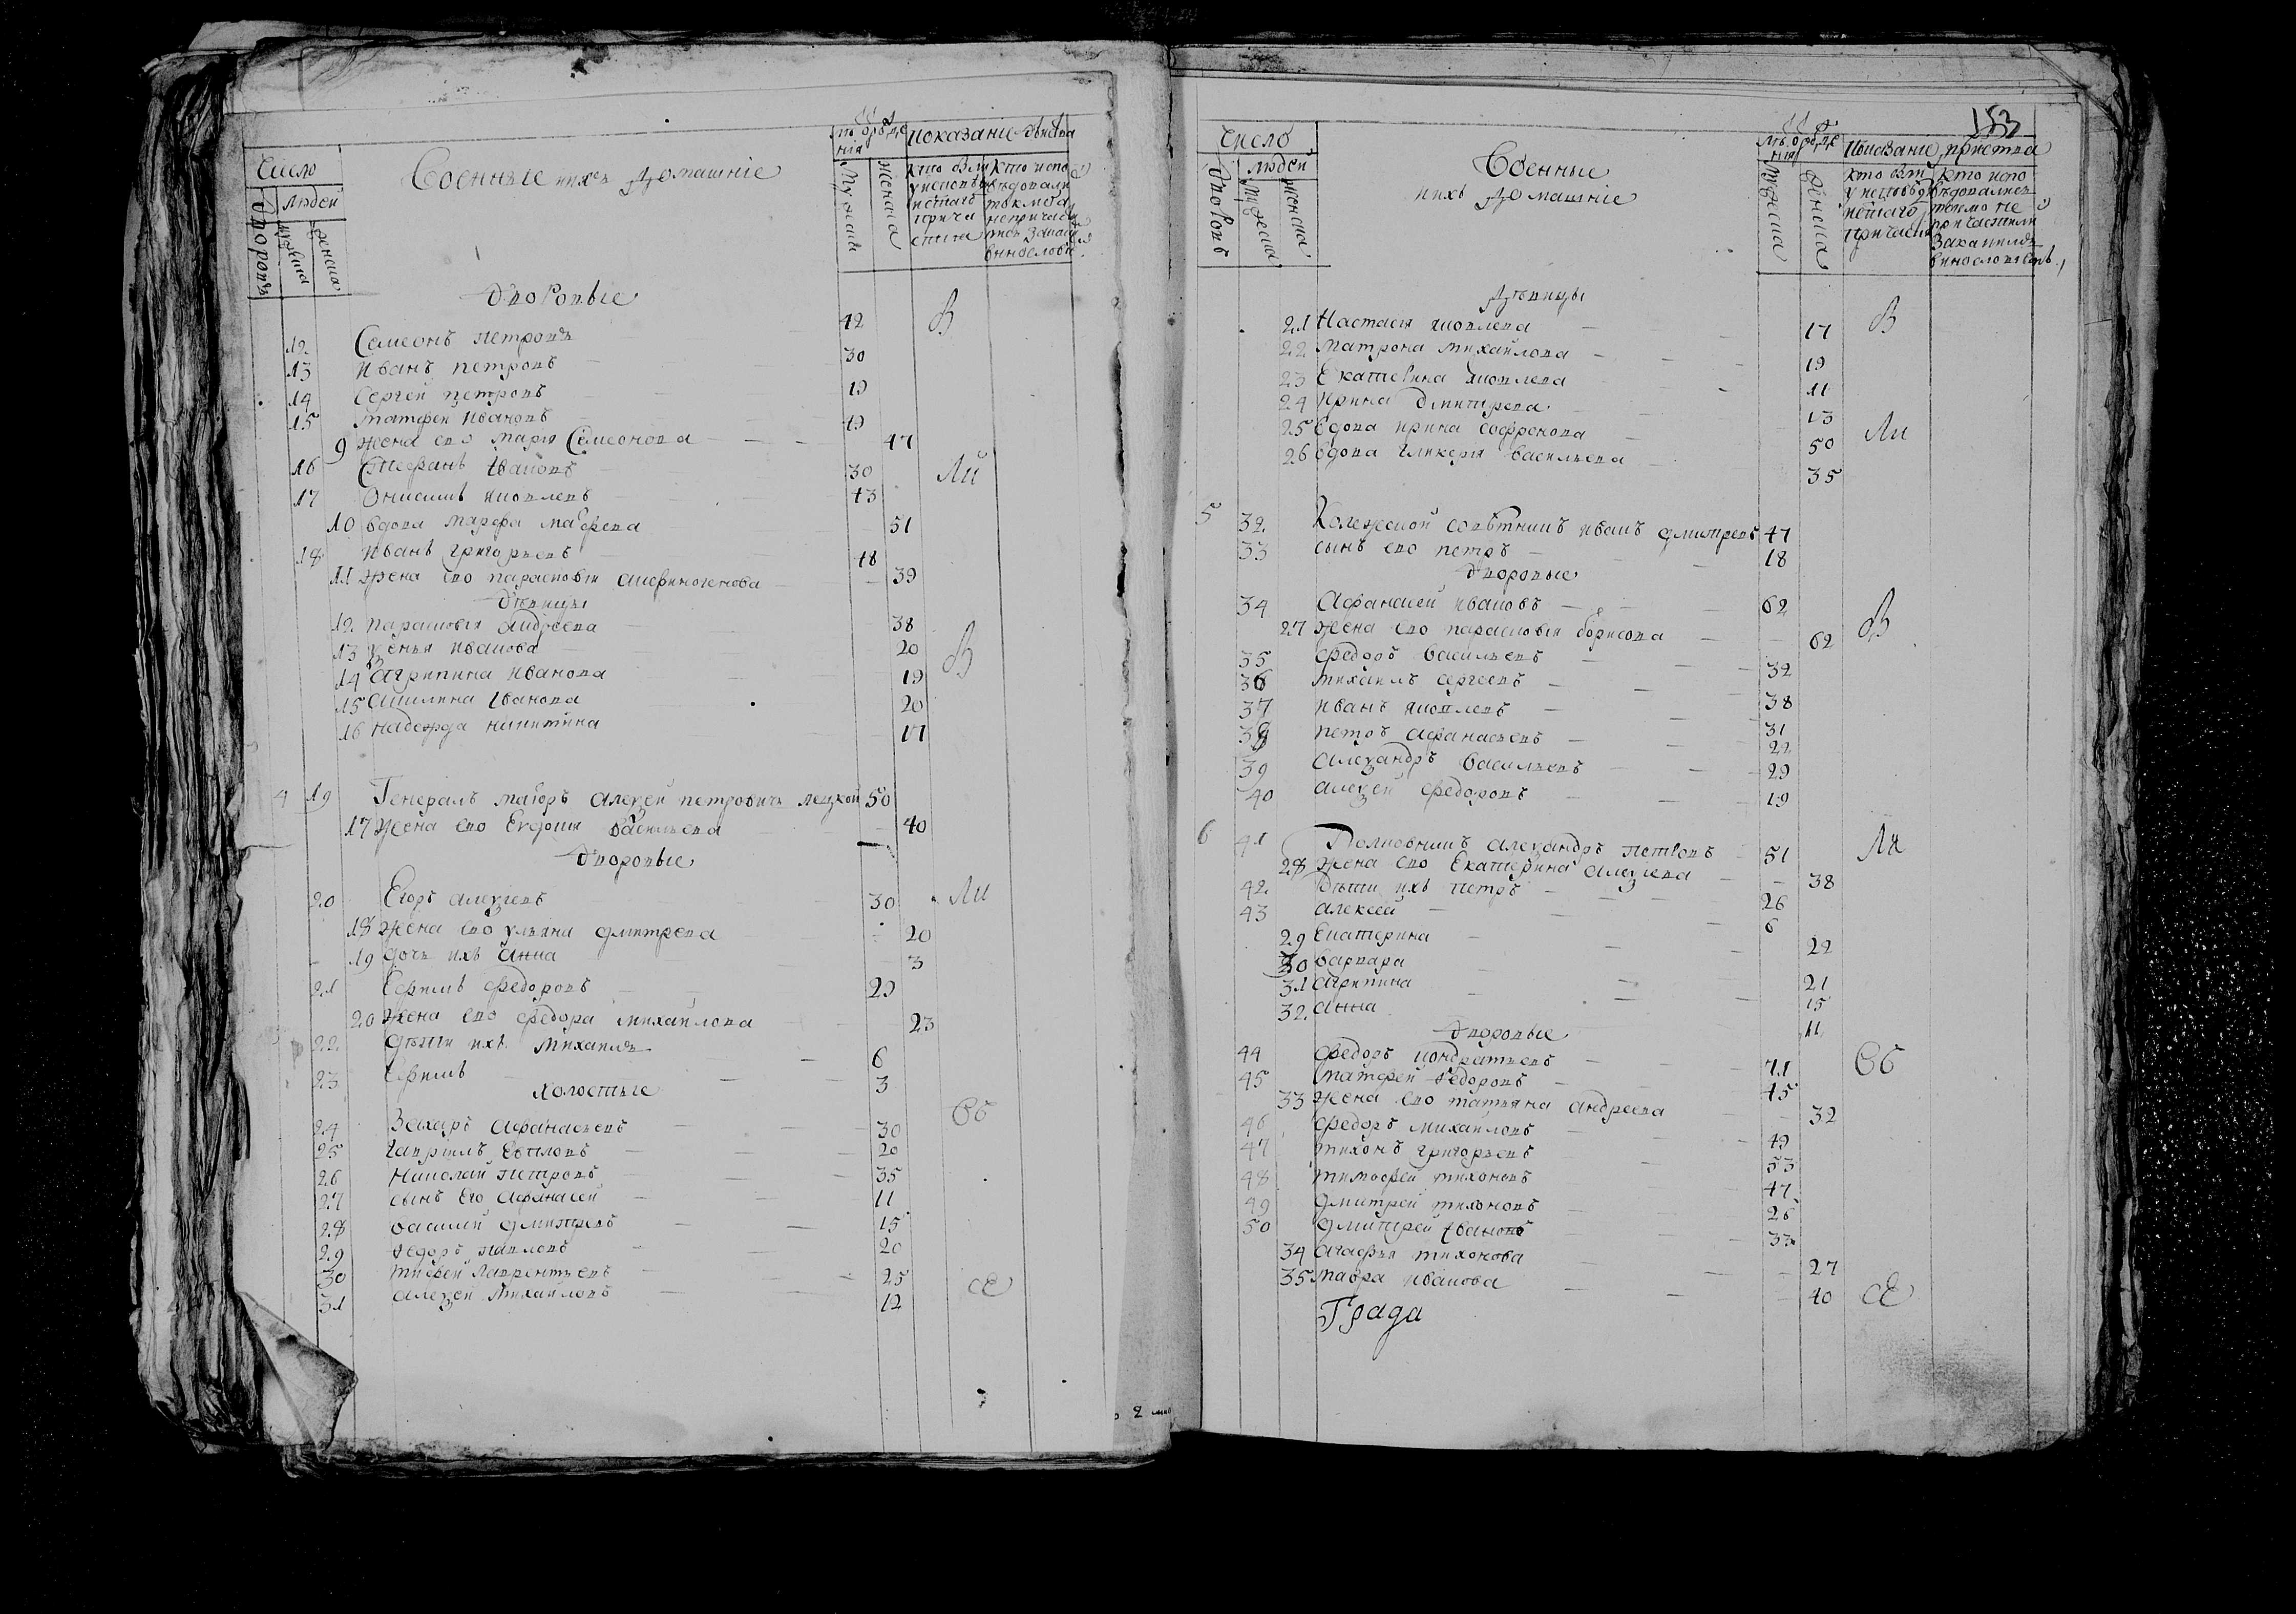 Число
Военные и ихъ Домашніе
Лѣ. о рожде
нія
показаніе бытія
Дворовъ
людей
мужеска
женска
Мужеска
женска
кто был
у исповѣ
и стаго
прича
стия
кто испо
вѣдовали
токмо а
не прича
Дворовые
В
12 Семенъ петровъ 42
13 Иванъ петровъ 30
14 Сергей петровъ 19
15 матфей Ивановъ 49
9 жена ево марья Семенова 47
16 Стефанъ Ивановъ 30 Ли
17 Онисимъ яковлевъ 43
10 вдова марфа матфеева 51
18 Иванъ григорьевъ 48
11 Жена ево парасковия анфиногенова 39
Дѣвицы
12 парасковия андреева 38
13 Ѯенья Иванова 20 В
14 агрипина Иванова 19
15 акилина Иванова 20
16 надежда никитина 17
4 19 Генералъ маіоръ алеѯей петровичь лецкой 50
17 жена ево Евдокия васильева 40
Дворовые
20 Егоръ алеѯеевъ 30 Ли
18 Жена ево ульяна дмитрева 20
19 дочь ихъ анна 3
21 Ефимъ федоровъ 29
20 Жена ево федора михайлова 23
22 дѣти ихъ Михаилъ 6
23 Ефимъ 3
холостые
24 Захаръ афанасьевъ 30 Об
25 гаврилъ 20
26 Николай петровъ 35
27 сынъ Его афанасей 11
28 василей дмитревъ 15
29 федоръ павловъ 20
30 тиофей лаврентьевъ 25 сЕ
31 алеѯей Михайловъ 12
153
Число
Военные
и ихъ Домашніе
Лѣ. о рожде
нія
Показание бытія
Дворовъ
людей
Мужеска
женска
Мужеска
женска
кто был
у исповѣд
и стаго
причастия
кто испо
вѣдовались
токмо не
причастили
Дѣвицы
21 Настасія яковлева 17 В
22 матрона михайлова 19
23 Екатерина яковлева 11
24 ирина дмитрева 13
25 вдова ирина софронова 50 Ли
26 вдова гликерия васильева 35
5 32 Колежской совѣтникъ иванъ дмитревъ 47
33 сынъ ево петръ 18
Дворовые
34 Афанасей ивановъ 62
27 жена ево парасковия борисова 62 В
35 федоръ васильевъ 32
36 михаилъ сергеевъ 38
37 иванъ яковлевъ 31
38 петръ афанасьевъ 22
39 алеѯандръ васильевъ 29
40 алеѯей федоровъ 19
6 41 Полковникъ алеѯандръ петровъ 51 Ли
28 жена ево Екатерина алеѯиева 38
42 дѣти ихъ петръ 26
43 алексей 6
29 Екатерина 22
30 варвара 21
31 агрипина 15
32 анна 11
Дворовые
44 федоръ кондратьевъ 71 Об
45 матфей федоровъ 45
33 жена ево татьяна андреева 32
46 федоръ михайловъ 49
47 тихонъ григорьевъ 53
48 тимофей тихоновъ 47
49 дмитрей тихоновъ 26
50 дмитрей Ивановъ 33
34 агафья тихонова 27
35 мавра иванова 40 сЕ
Града